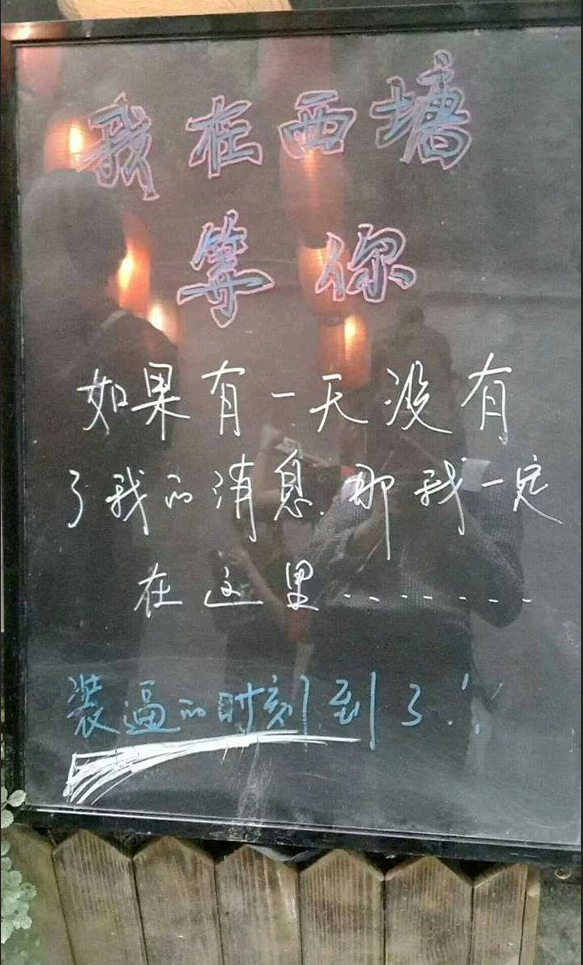 我在西塘
等你
如果有一天没有
了我的消息.那我一定
在这里.......
装逼的时刻到了!!